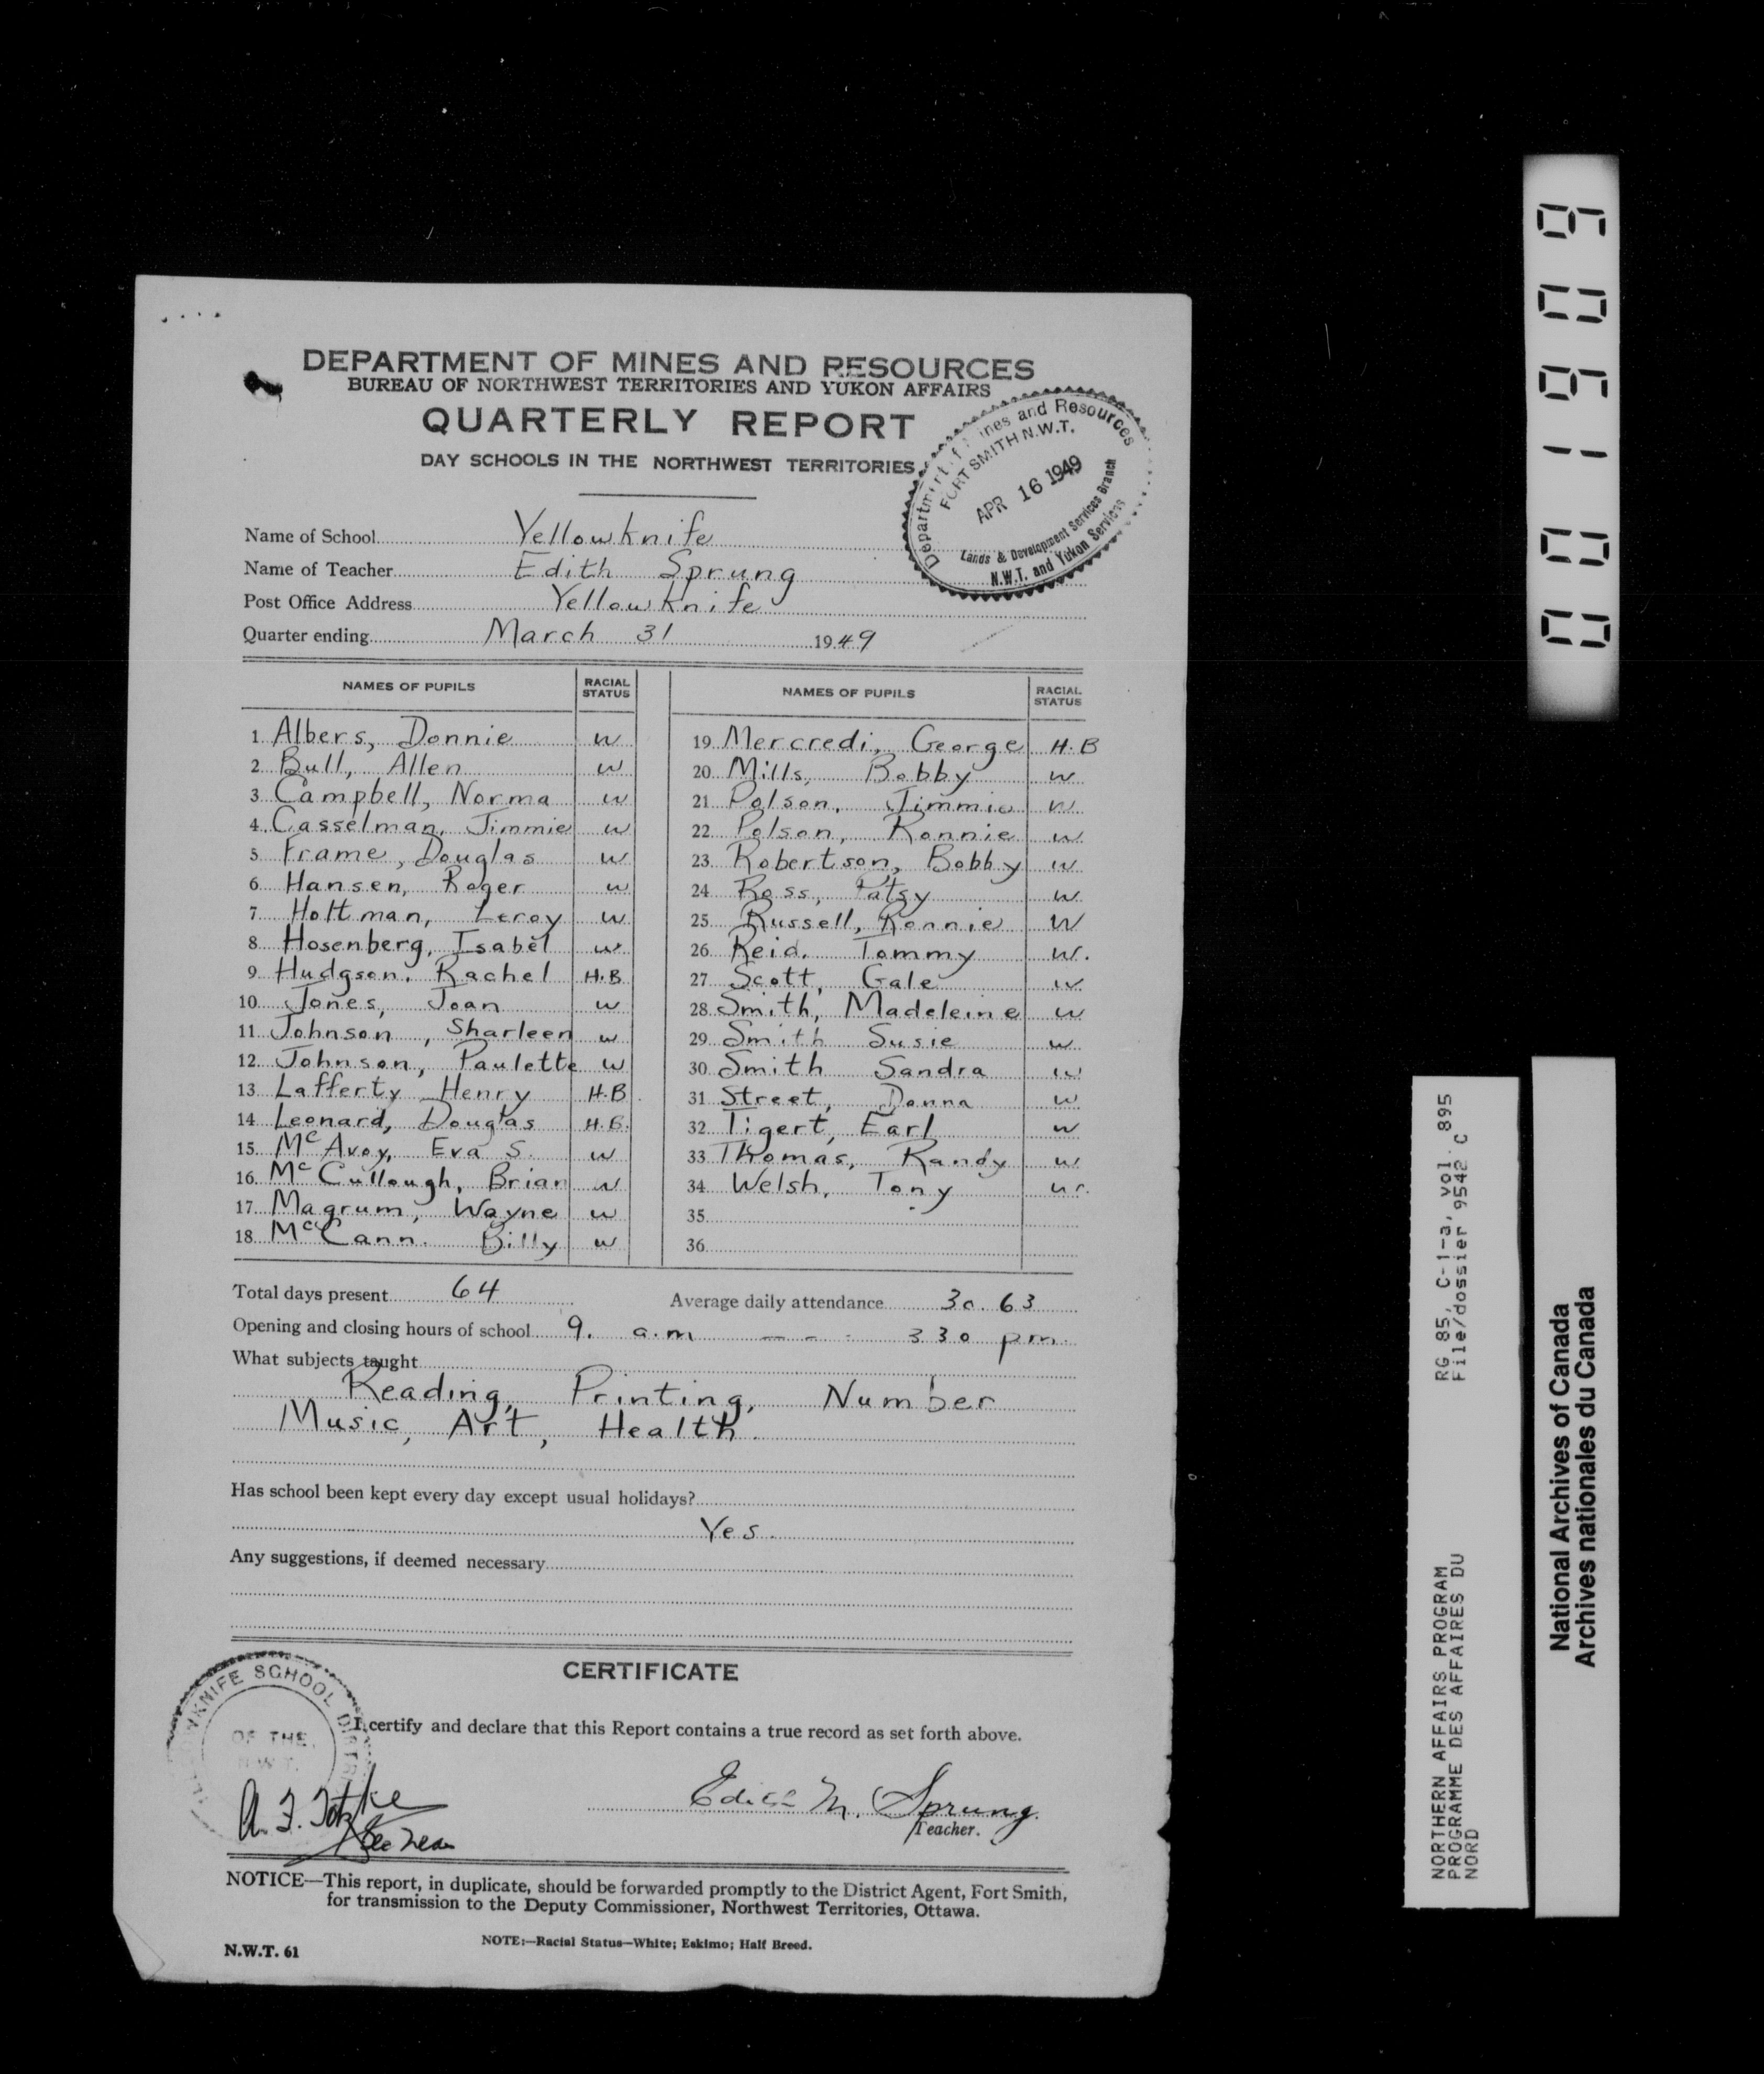 DEPARTMENT OF MINES AND RESOURCES
BUREAU OF NORTHWEST TERRITORIES AND YUKON AFFAIRS
QUARTERLY REPORT
DAY SCHOOLS IN THE NORTHWEST TERRITORIES
Department of Mines and Resources
FORT SMITH N.W.T.
APR 16 1949
Lands & Development Services Branch
N.W.T. and Yukon Services
Name of School Yellowknife
Name of Teacher Edith Sprung
Post Office Address Yellowknife
Quarter ending March 31 1949
NAMES OF PUPILS RACIAL STATUS
1 Albers, Donnie W
2 Bull, Allen W
3 Campbell, Norma W
4 Casselman, Jimmie W
5 Frame, Douglas W
6 Hansen, Roger W
7 Holtman, Leroy W
8 Hosenberg, Isabel W
9 Hudgson, Rachel H.B
10 Jones, Joan W
11 Johnson, Sharleen W
12 Johnson, Paulette W
13 Lafferty Henry H.B
14 Leonard, Douglas H.B.
15 McAvoy, Eva S. W
16 McCullough, Brian W
17 Magrum, Wayne W
18 McCann. Billy W
NAMES OF PUPILS RACIAL STATUS
19 Mercredi, George H.B
20 Mills, Bobby W
21 Polson, Jimmie W
22 Polson, Ronnie W
23 Robertson, Bobby W
24 Ross, Patsy W
25 Russell, Ronnie W
26 Reid, Tommy W.
27 Scott, Gale W
28 Smith, Madeleine W
29 Smith Susie W
30 Smith Sandra W
31 Street, Donna W
32 Tigert, Earl W
33 Thomas, Randy W
34 Welsh, Tony W.
35
36
Total days present 64 Average daily attendance 30.63
Opening and closing hours of school 9. a.m - - - 3 30 pm.
What subjects taught
Reading, Printing, Number
Music, Art, Health.
Has school been kept every day except usual holidays?
Yes.
Any suggestions, if deemed necessary
CERTIFICATE
YELLOWKNIFE SCHOOL DISTRICT
OF THE
N.W.T.
I certify and declare that this Report contains a true record as set forth above.
Edith M. Sprung
Teacher.
A. F. Totzke
Sec Treas
NOTICE—This report, in duplicate, should be forwarded promptly to the District Agent, Fort Smith,
for transmission to the Deputy Commissioner, Northwest Territories, Ottawa.
NOTE:—Racial Status—White; Eskimo; Half Breed.
N.W.T. 61
001909
RG 85, C-1-a, vol. 895
File/dossier 9542 C
NORTHERN AFFAIRS PROGRAM
PROGRAMME DES AFFAIRES DU
NORD
National Archives of Canada
Archives nationales du Canada